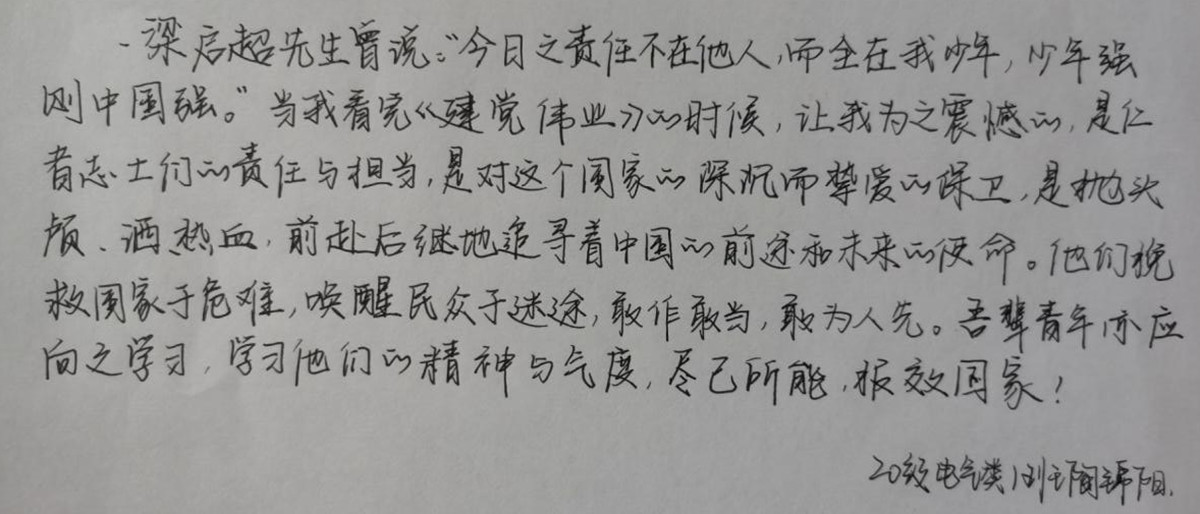 梁启超先生曾说:“今日之责任不在他人,而全在我少年,少年强
则中国强。”当我看完《建党伟业》的时候,让我为之震憾的,是仁
者志士们的责任与担当,是对这个国家的深沉而挚爱的保卫,是抛头
颅、洒热血,前赴后继地追寻着中国的前途和未来的使命。他们挽
救国家于危难,唤醒民众于迷途,敢作敢当,敢为人先。吾辈青年亦应
向之学习,学习他们的精神与气度,尽己所能,报效国家!
20级电气类